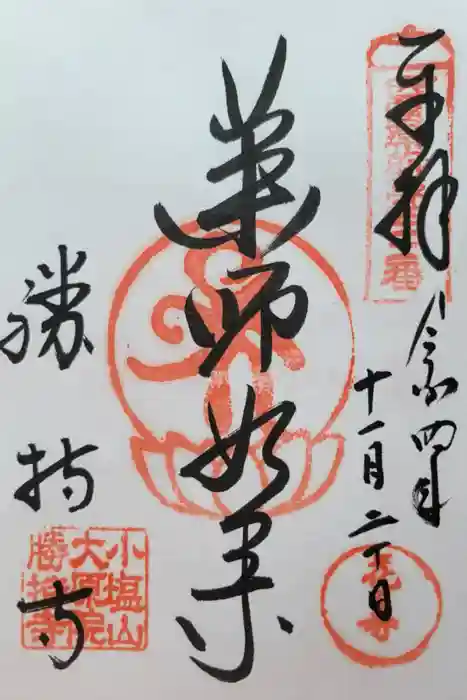 奉拝
令和四年
十一月二十日
薬師如来
勝持寺
小塩山
大原院
勝持寺
花の寺